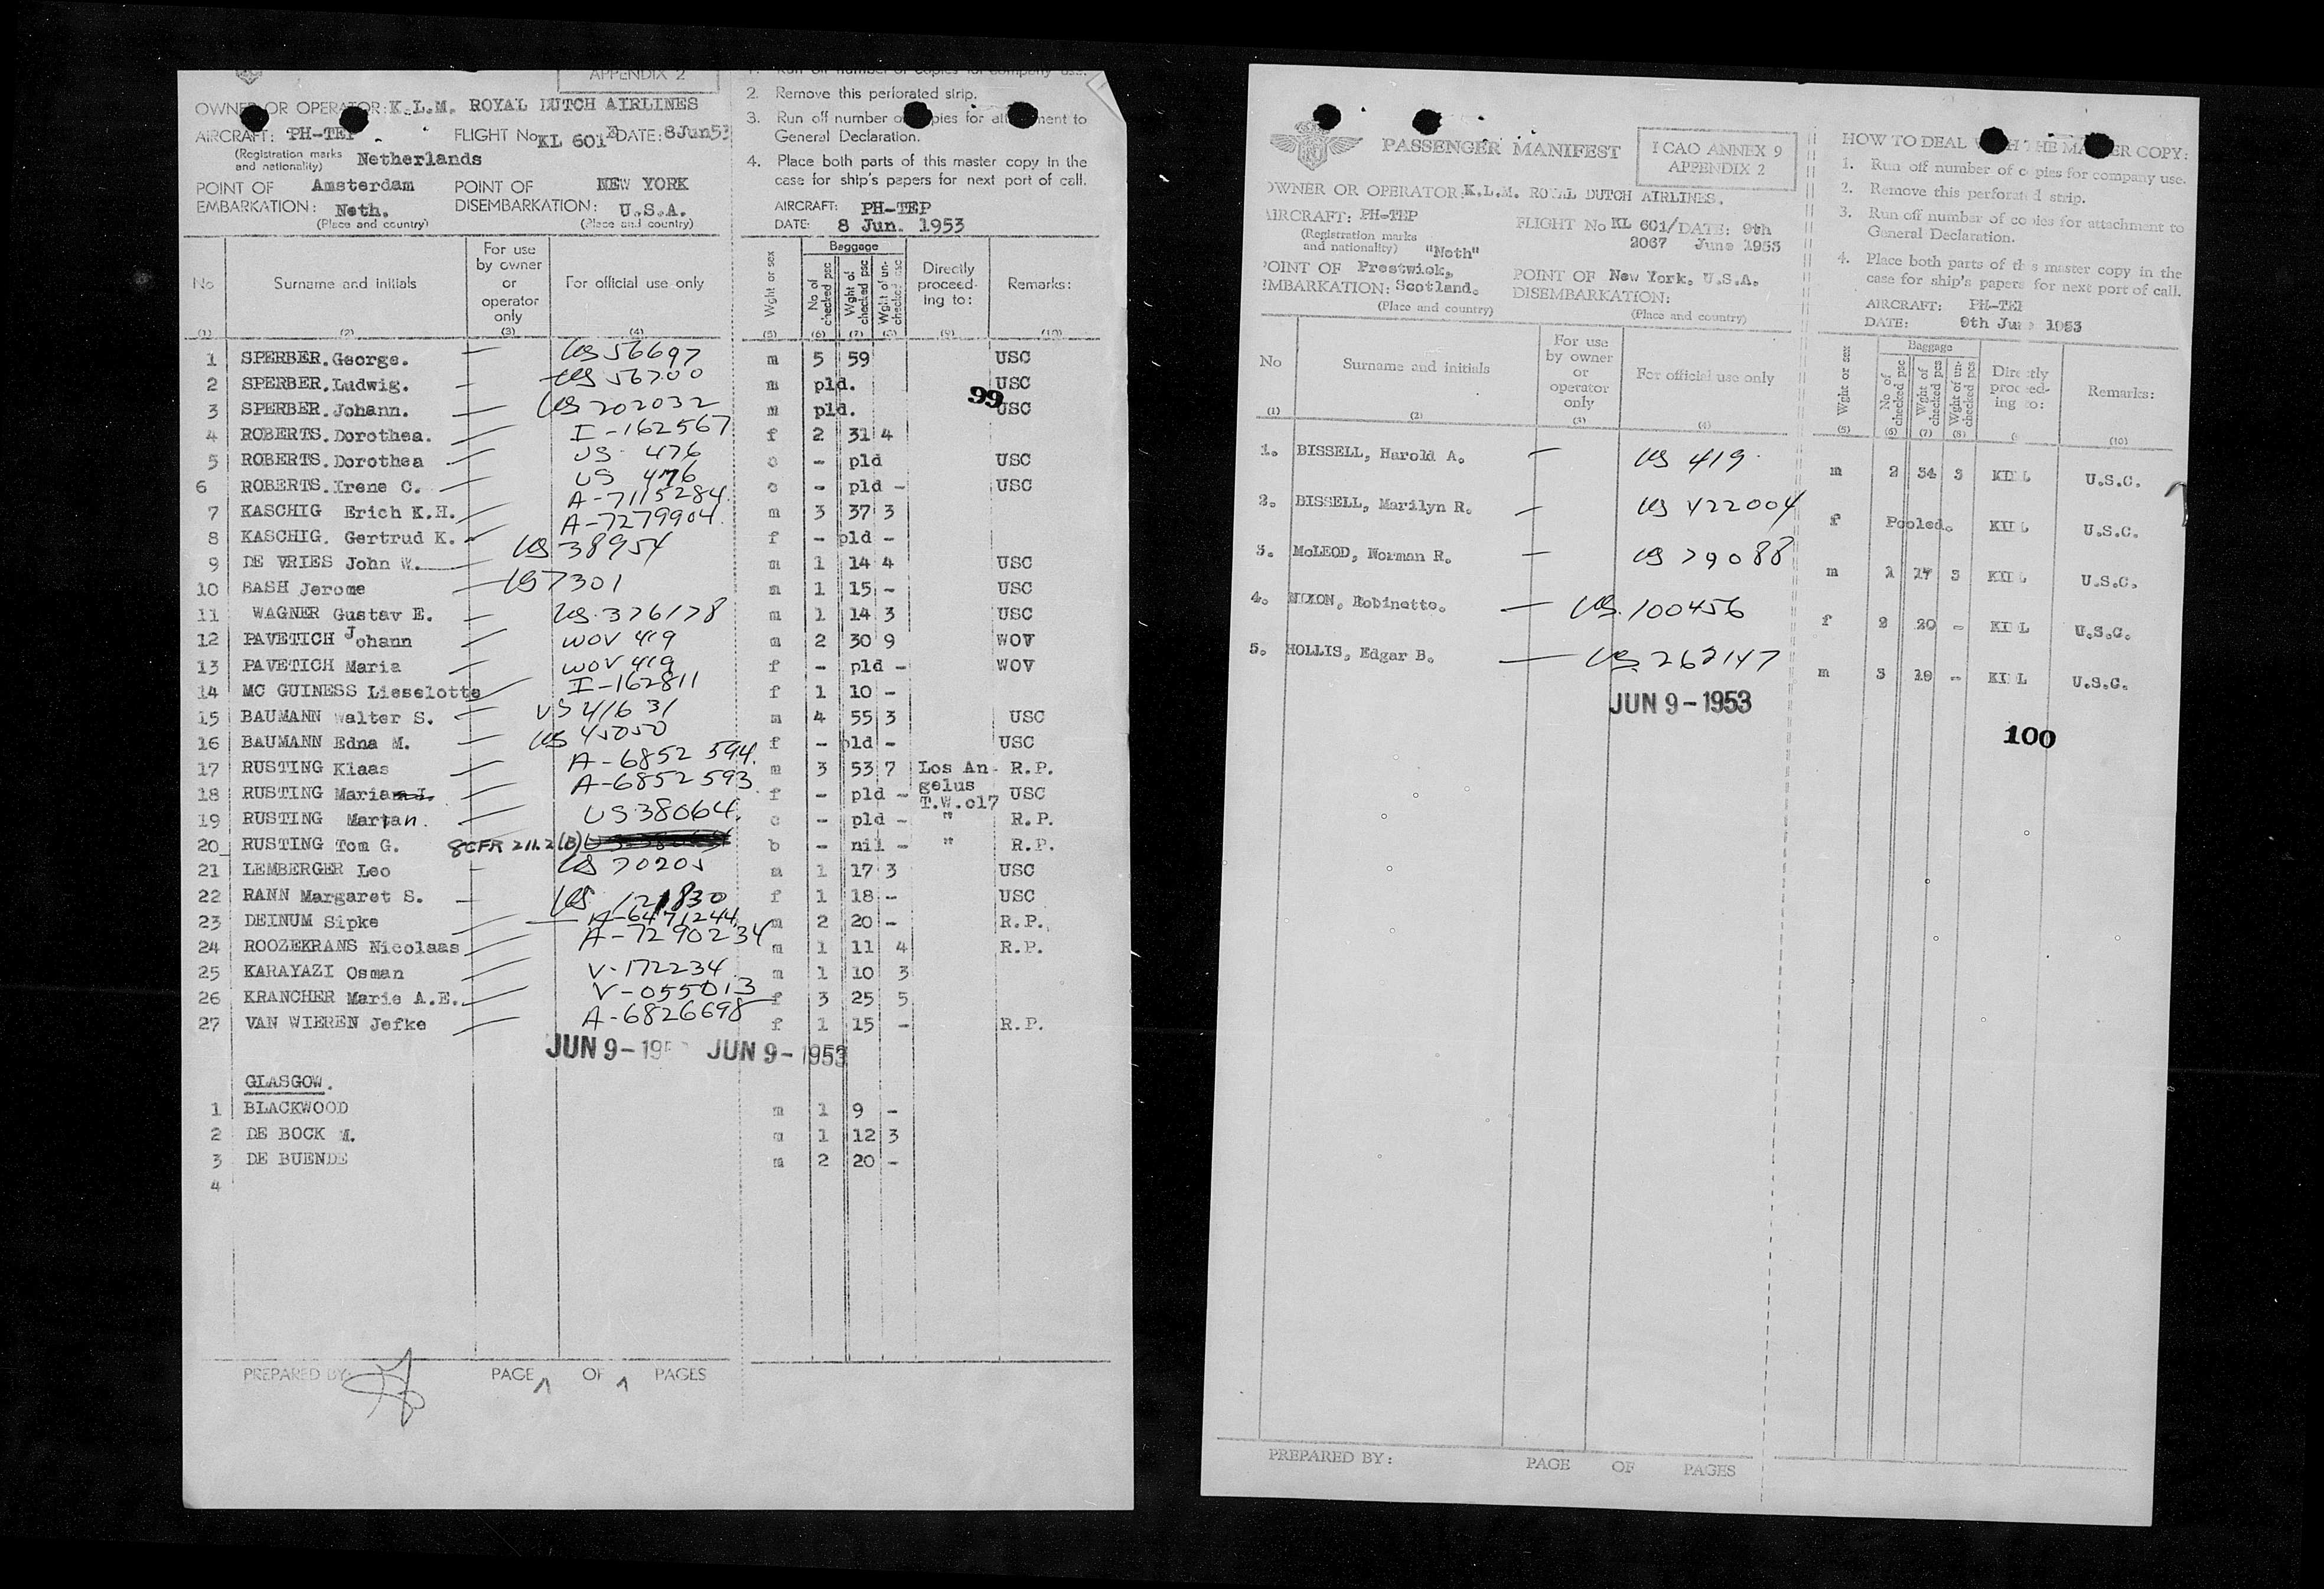 APPENDIX 2
OWNER OR OPERATOR: K.L.M. ROYAL DUTCH AIRLINES
AIRCRAFT: PH-TEP FLIGHT No KL 601 E DATE: 8Jun53
(Registration marks and nationality) Netherlands
POINT OF EMBARKATION: Amsterdam Neth. (Place and country)
POINT OF DISEMBARKATION: NEW YORK U.S.A. (Place and country)
1. Run off number of copies for company use.
2. Remove this perforated strip.
3. Run off number of copies for attachment to
General Declaration.
4. Place both parts of this master copy in the
case for ship's papers for next port of call.
AIRCRAFT: PH-TEP
DATE: 8 Jun. 1953
No (1) Surname and initials (2) For use by owner or operator only (3) For official use only (4) Wght or sex (5) Baggage No of checked psc (6) Wght of checked psc (7) Wght of un-checked psc (8) Directly proceed-ing to: (9) Remarks: (10)
1 SPERBER.George. — US 56697 m 5 59 USC
2 SPERBER.Ludwig. — US 56700 m pld. USC
99
3 SPERBER.Johann. — US 202032 m pld. USC
4 ROBERTS.Dorothea. — I-162567 f 2 31 4
5 ROBERTS.Dorothea — US 476 c - pld USC
6 ROBERTS.Irene C. — US 476 c - pld - USC
7 KASCHIG Erich K.H. — A-7115284 m 3 37 3
8 KASCHIG. Gertrud K. — A-7279904 f - pld -
9 DE VRIES John W. — US 38954 m 1 14 4 USC
10 BASH Jerome — US 7301 m 1 15 - USC
11 WAGNER Gustav E. — US.376178 m 1 14 3 USC
12 PAVETICH Johann — WOV 419 m 2 30 9 WOV
13 PAVETICH Maria — WOV 419 f - pld - WOV
14 MC GUINESS Lieselotte — I-162811 f 1 10 -
15 BAUMANN Walter S. — US 41631 m 4 55 3 USC
16 BAUMANN Edna M. — US 45050 f - pld - USC
17 RUSTING Klaas — A-6852594. m 3 53 7 Los An- R.P.
18 RUSTING Maria — A-6852593 f - pld - gelus USC
T.W.o17
19 RUSTING Martan. — US 38064. c - pld - " R.P.
20 RUSTING Tom G. 8CFR 211.2(B) b - nil - " R.P.
21 LEMBERGER Leo - US 70205 m 1 17 3 USC
22 RANN Margaret S. — US 121830 f 1 18 - USC
23 DEINUM Sipke — A-6471244 m 2 20 - R.P.
24 ROOZEKRANS Nicolaas — A-7290234 m 1 11 4 R.P.
25 KARAYAZI Osman — V-172234 m 1 10 3
26 KRANCHER Marie A.E. — V-055013 f 3 25 5
27 VAN WIEREN Jefke — A-6826698 f 1 15 - R.P.
JUN 9-195 JUN 9-1953
GLASGOW.
1 BLACKWOOD m 1 9 -
2 DE BOCK M. m 1 12 3
3 DE BUENDE m 2 20 -
4
PREPARED BY: PAGE 1 OF 1 PAGES
PASSENGER MANIFEST
ICAO ANNEX 9
APPENDIX 2
OWNER OR OPERATOR: K.L.M. ROYAL DUTCH AIRLINES.
AIRCRAFT: PH-TEP FLIGHT No KL 601/2067 DATE: 9th June 1953
(Registration marks and nationality) "Neth"
POINT OF EMBARKATION: Prestwick, Scotland. (Place and country)
POINT OF DISEMBARKATION: New York. U.S.A. (Place and country)
HOW TO DEAL WITH THE MASTER COPY:
1. Run off number of copies for company use.
2. Remove this perforated strip.
3. Run off number of copies for attachment to
General Declaration.
4. Place both parts of this master copy in the
case for ship's papers for next port of call.
AIRCRAFT: PH-TEP
DATE: 9th June 1953
No (1) Surname and initials (2) For use by owner or operator only (3) For official use only (4) Wght or sex (5) Baggage No of checked psc (6) Wght of checked pcs (7) Wght of un-checked pcs (8) Directly proceed-ing to: Remarks: (10)
1. BISSELL, Harold A. — US 419. m 2 34 3 U.S.C.
2. BISSELL, Marilyn R. — US 422004 f Pooled. U.S.C.
3. McLEOD, Norman R. — US 79088 m 1 17 3 U.S.C.
4. NIXON, Robinette. — US.100456 f 2 20 - U.S.C.
5. HOLLIS, Edgar B. — US.262147 m 3 19 - U.S.C.
JUN 9-1953
100
PREPARED BY: PAGE OF PAGES